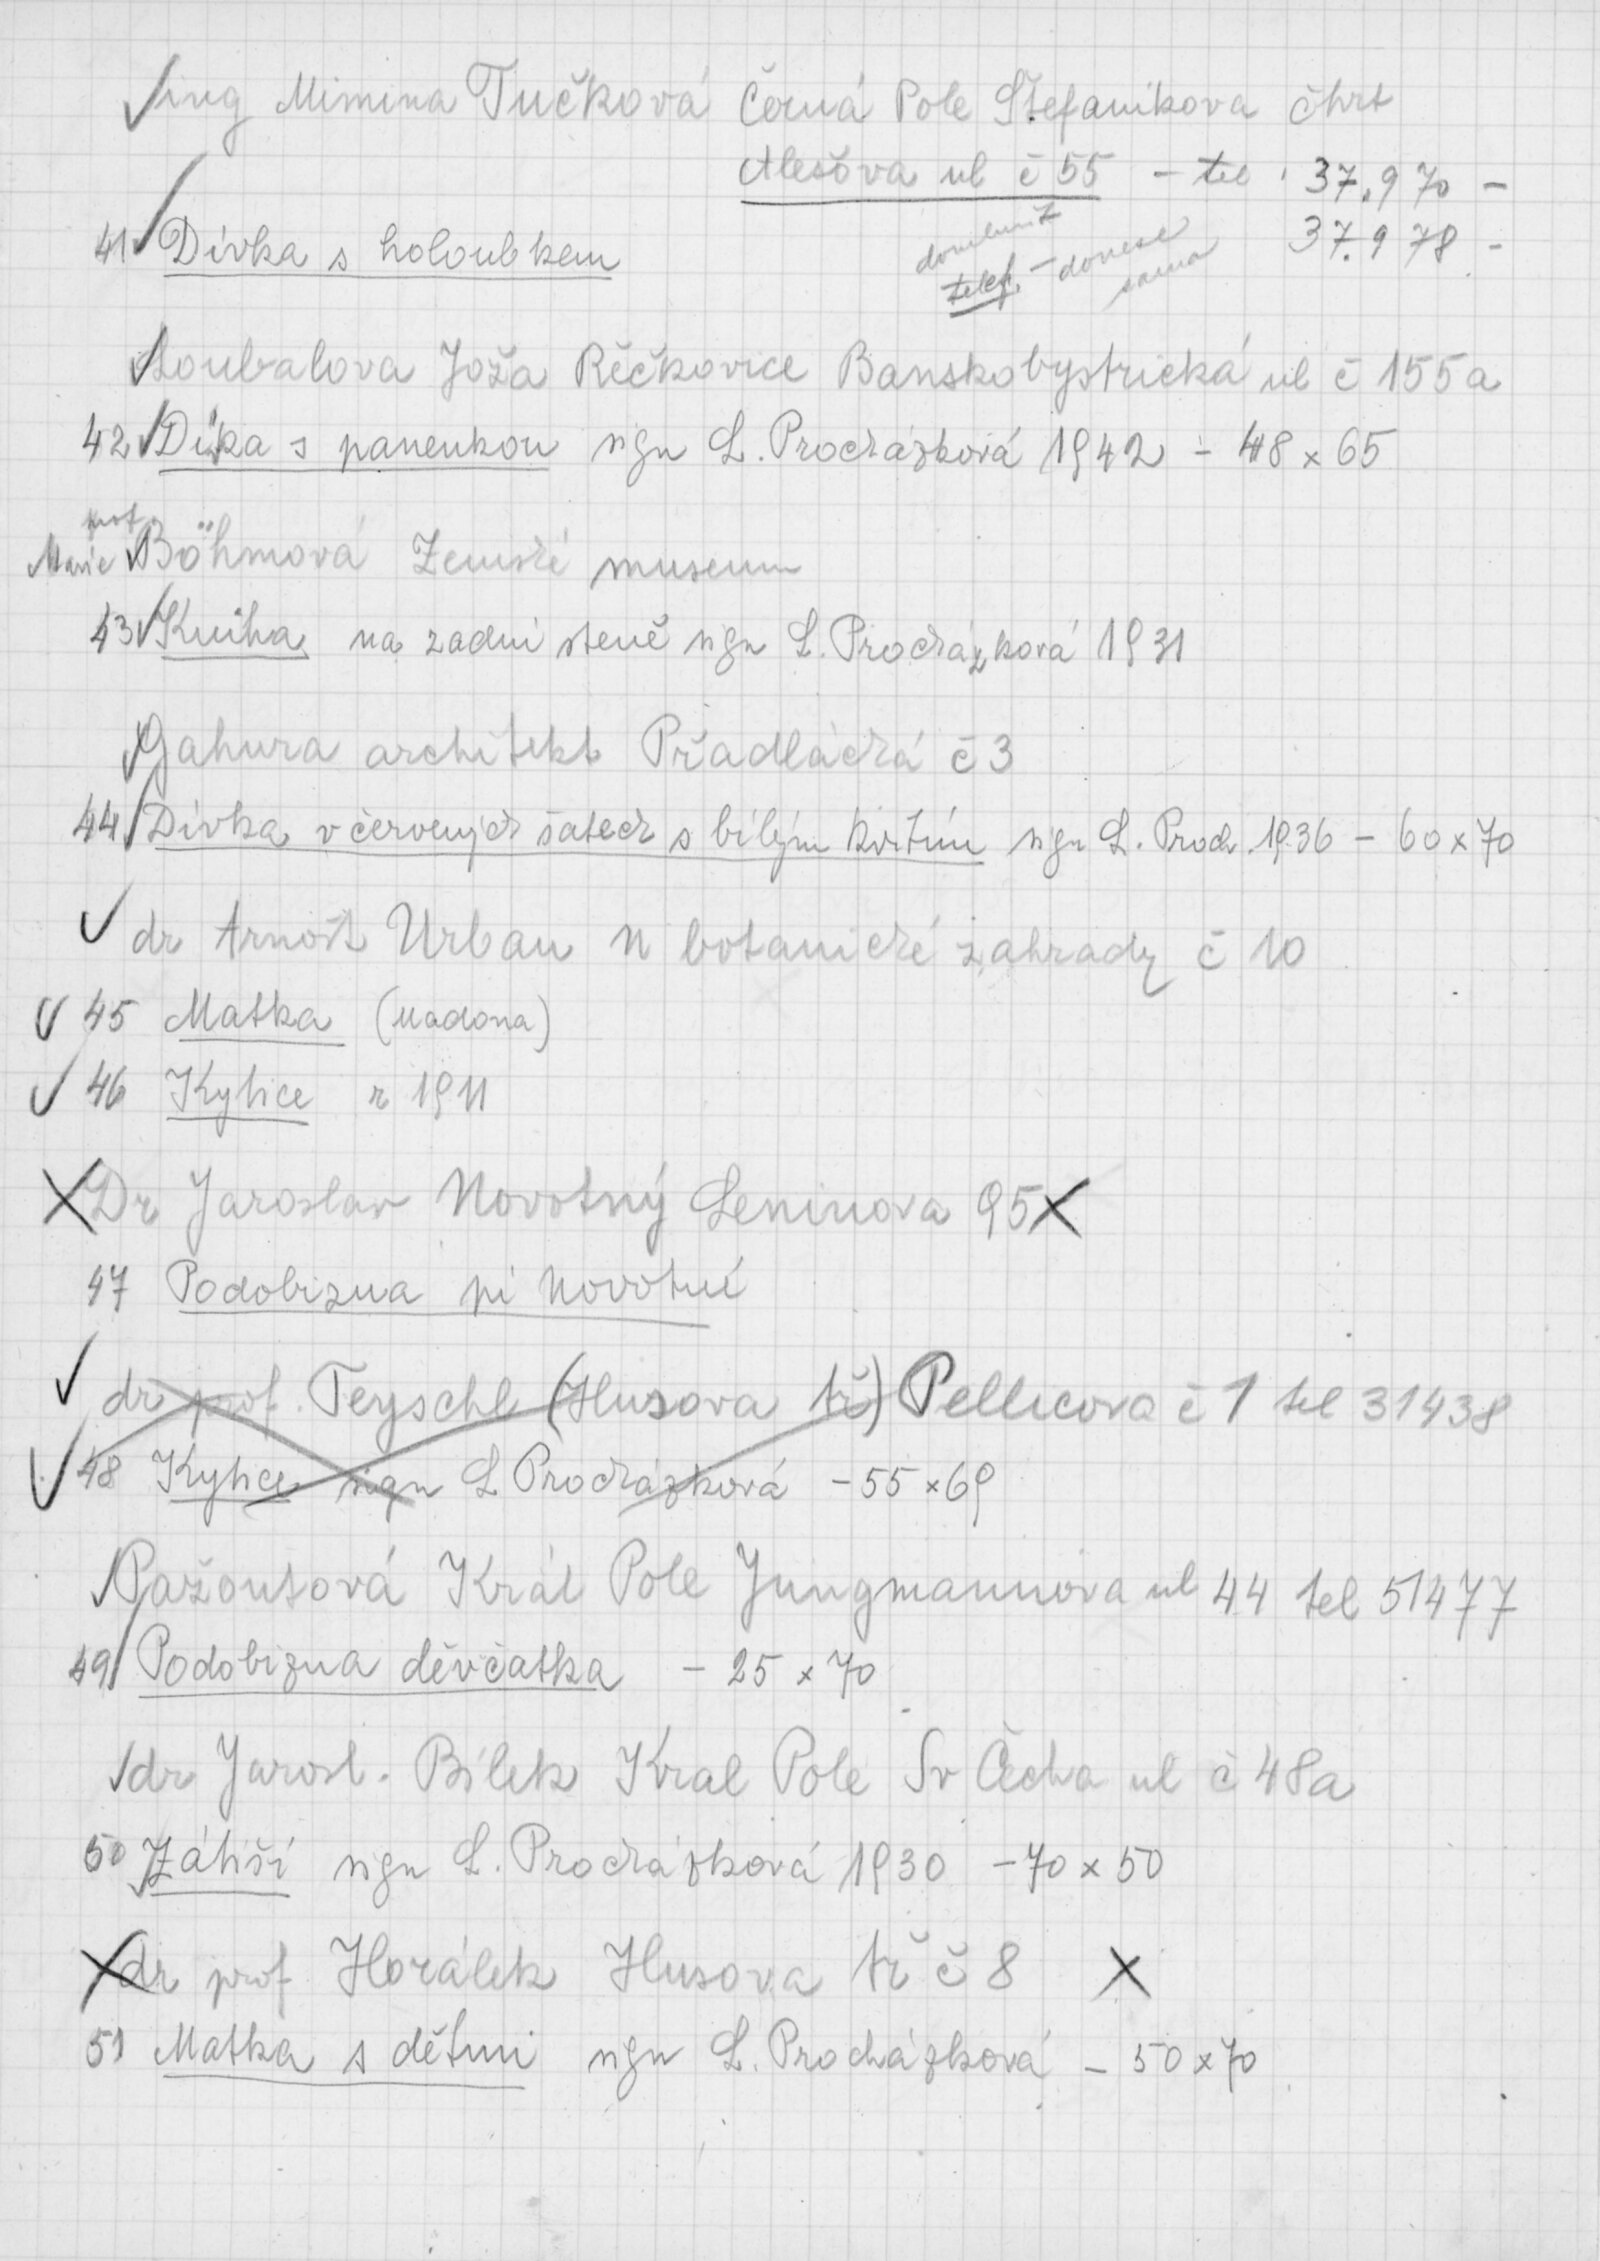 ing Mimina Tučková Černá Pole Štefanikova čtvrt
Alešova ul č 55 - tel 37.970 -
37.978 -
domluvit
telef. - donese
sama
41 Dívka s holoubkem
Loubalova Joža Řečkovice Banskobystrická ul č 155a
42 Dívka s panenkou sign L. Procházková 1942 - 48 x 65
prof.
Marie Böhmová Zemské museum
43 Kniha na zadní steně sign L. Procházková 1931
Gahura architekt Přadlácká č 3
44 Dívka v červených šatech s bílým kvítím sign L. Proch. 1936 - 60 x 70
dr Arnošt Urban U botanické zahrady č 10
45 Matka (Madona)
46 Kytice z 1911
Dr Jaroslav Novotný Leninova 95
47 Podobizna pí Novotné
dr prof. Teyschl (Husova tř) Pellicova č 1 tel 31438
48 Kytice sign L Procházková - 55 x 69
Pažoutová Král Pole Jungmannova ul 44 tel 51477
49 Podobizna děvčatka - 25 x 70
dr Jarosl. Bílek Kral Pole Sv Čecha ul č 48a
50 Zátiší sign L. Procházková 1930 - 70 x 50
dr prof Horálek Husova tř č 8
51 Matka s dětmi sign L. Procházková - 50 x 70